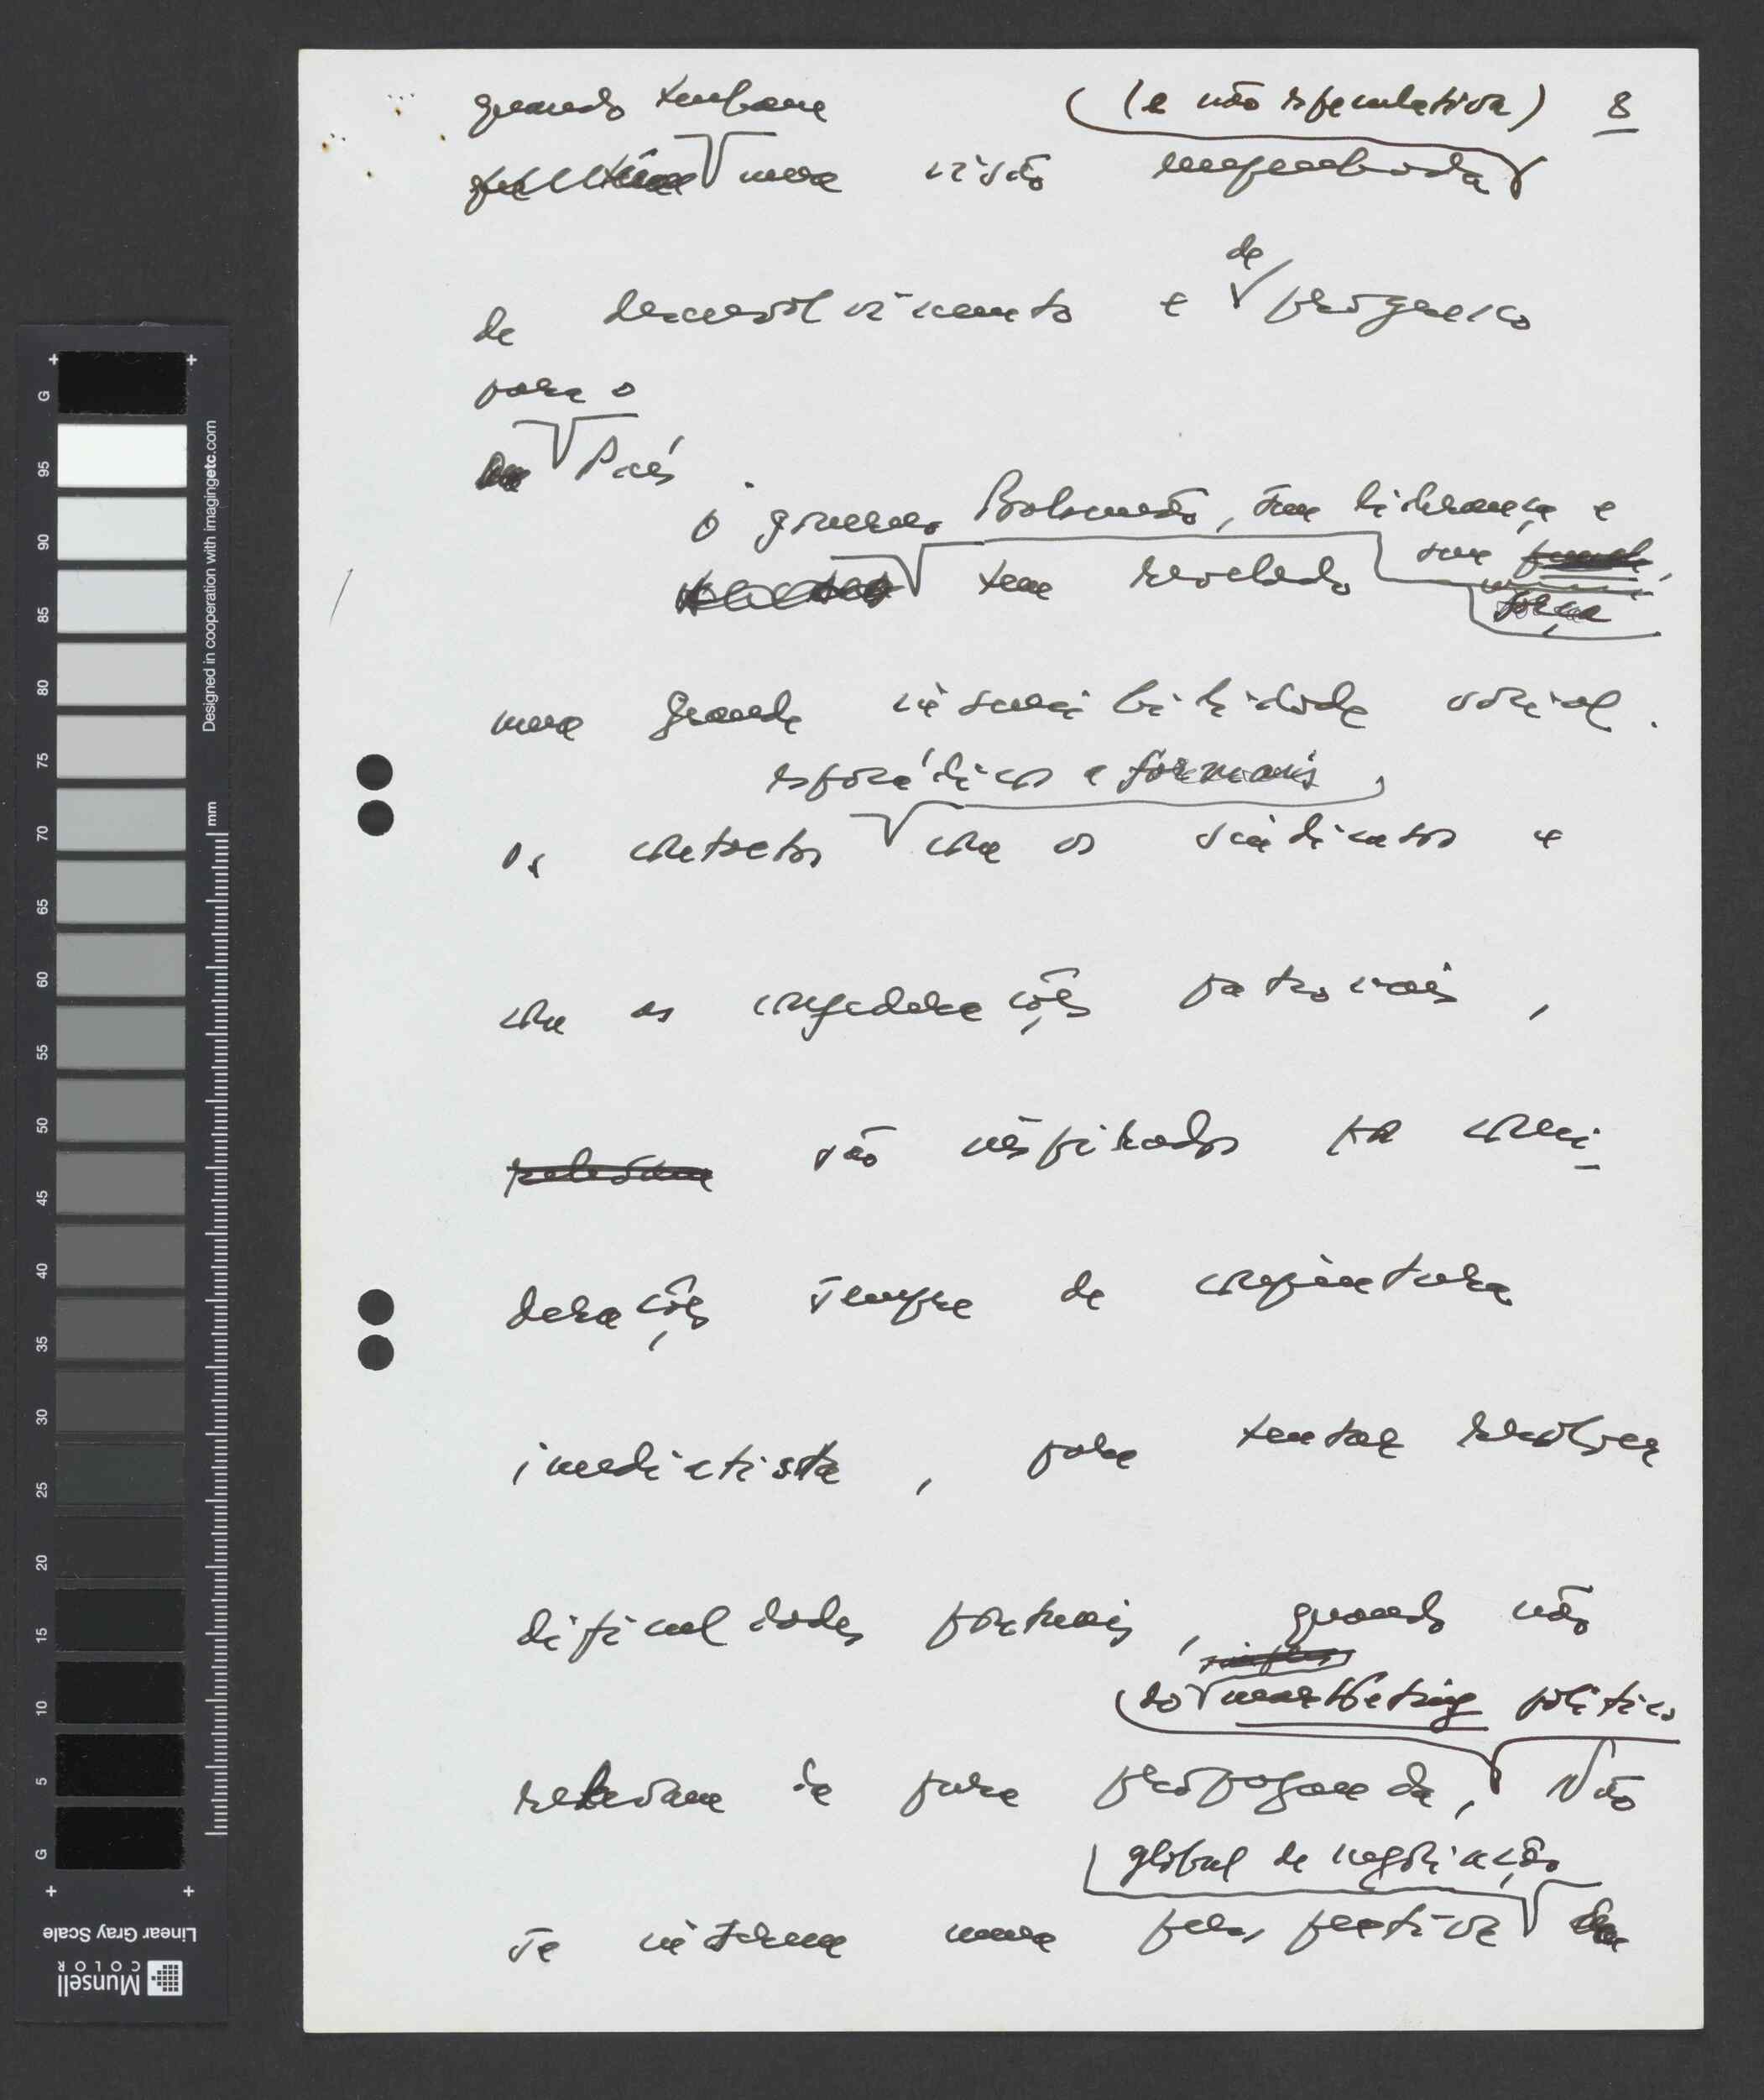 quando tenham (e não especulativa) 8
uma visão empenhada
de
de desenvolvimento e progresso
para o
País.
O governo Balsemão, sem liderança e
tem revelado sem
força
uma grande insensibilidade social.
esporádicos e formais,
Os contactos com os sindicatos e
com as confederações patronais,
são inspirados por consi-
derações sempre de conjuntura
imediatista, para tentar resolver
dificuldades pontuais, quando não
do marketing político
relevam da pura propaganda, Não
global de negociação
se inserem numa perspectiva
G 95 90 85 80 75 70 65 60 55 50 45 40 35 30 25 20 15 10 5 G
Designed in cooperation with imagingetc.com
mm
Linear Gray Scale
Munsell
COLOR